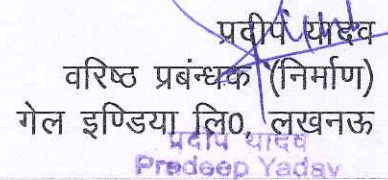 प्रदीप यादव
वरिष्ठ प्रबंन्धक (निर्माण)
गेल इण्डिया लि0, लखनऊ
प्रदीप यादव
Pradeep Yadav